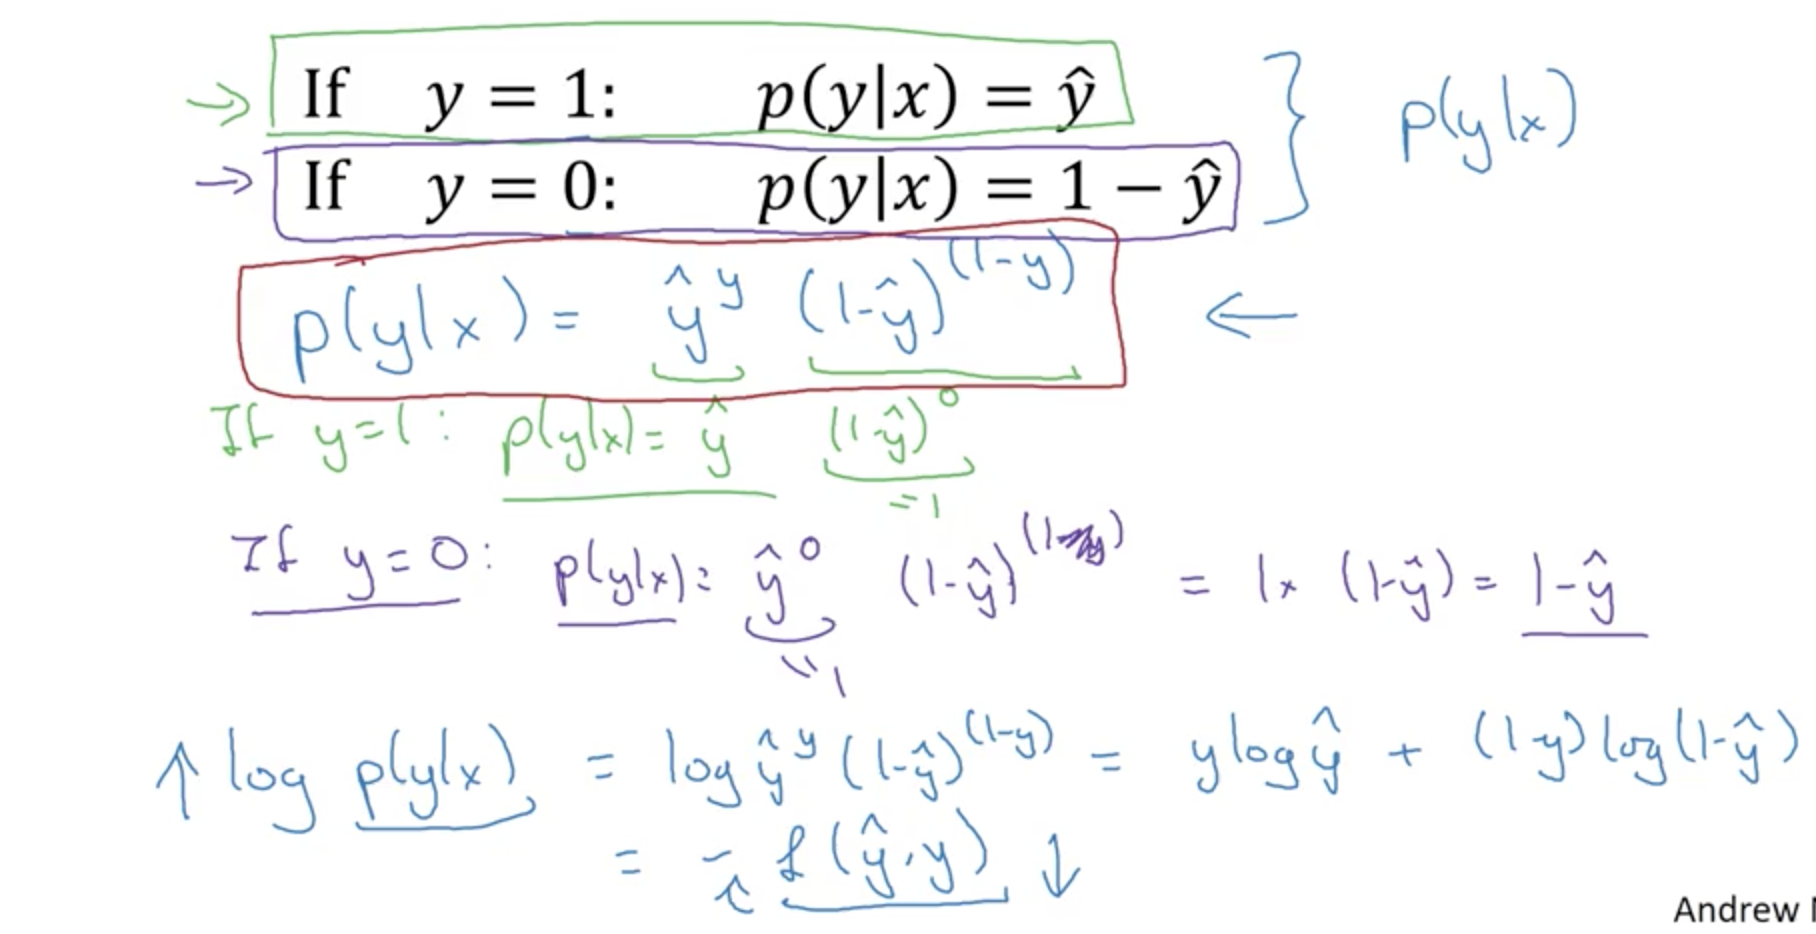 If y = 1: p(y|x) = ŷ
If y = 0: p(y|x) = 1 − ŷ
p(y|x)
p(y|x) = ŷ^y (1-ŷ)^(1-y) ←
If y=1: p(y|x) = ŷ (1-ŷ)^0
=1
If y=0: p(y|x) = ŷ^0 (1-ŷ)^(1-y) = 1 × (1-ŷ) = 1-ŷ
"1
↑ log p(y|x) = log ŷ^y (1-ŷ)^(1-y) = y log ŷ + (1-y) log(1-ŷ)
= - ℒ(ŷ,y) ↓
Andrew